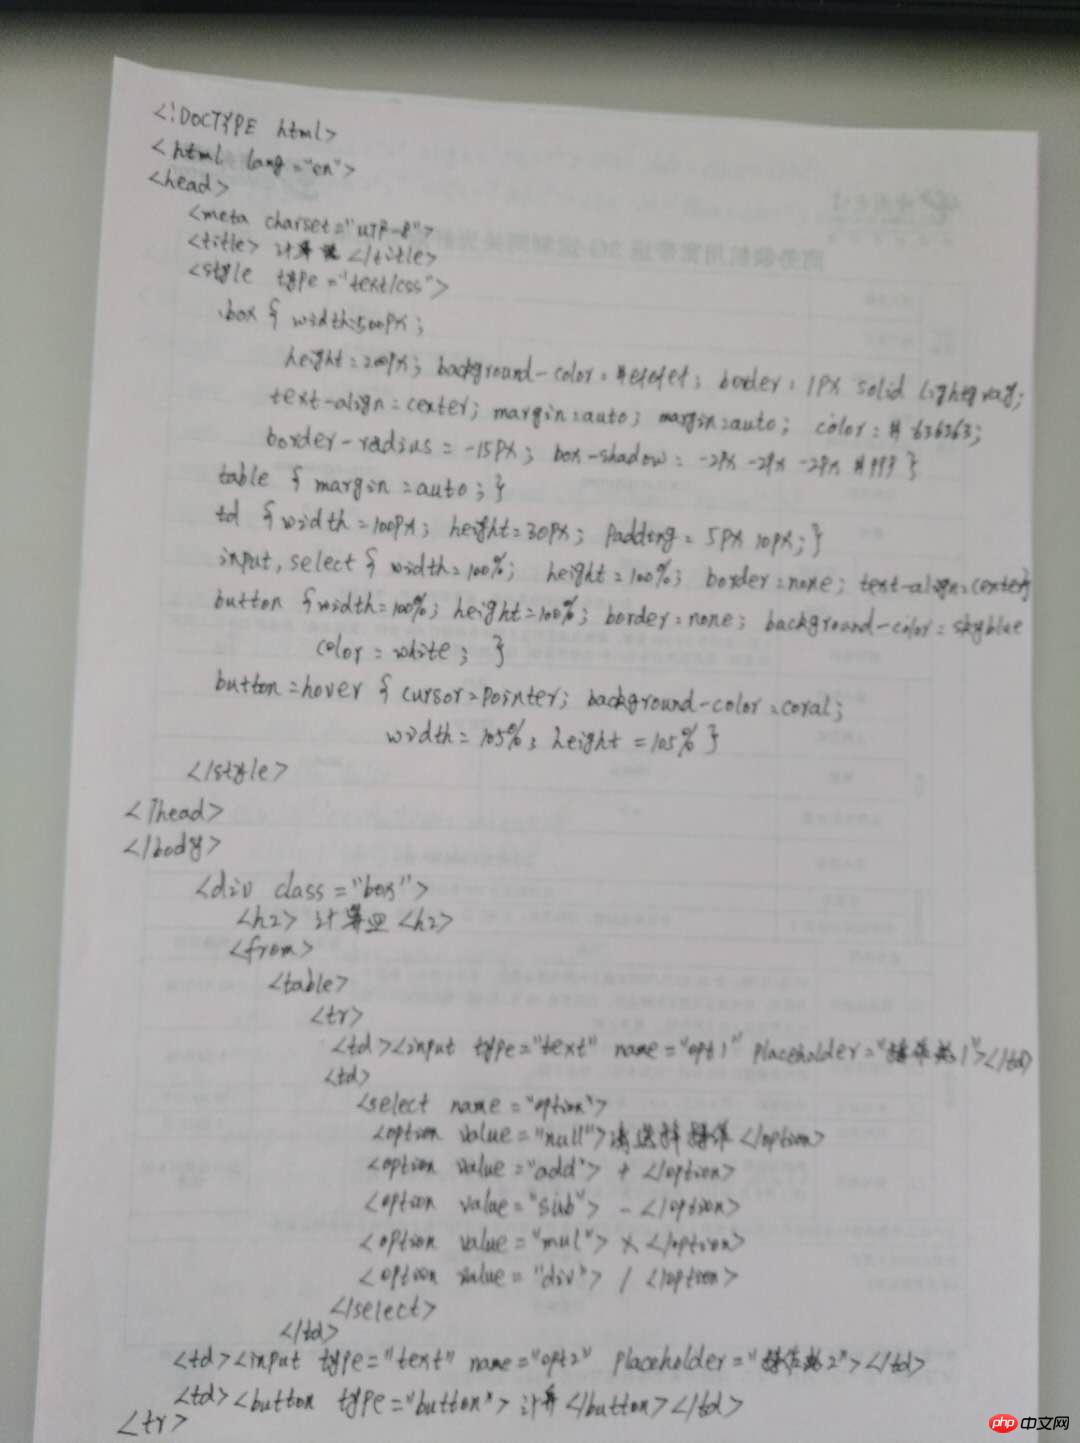 <!DOCTYPE html>
<html lang="en">
<head>
<meta charset="UTF-8">
<title>计算器</title>
<style type="text/css">
.box { width:500px;
height:200px; background-color:#efefef; border:1px solid lightgray;
text-align:center; margin:auto; margin:auto; color:#636363;
border-radius:-15px; box-shadow: -2px -2px -2px #999 }
table { margin:auto; }
td { width:100px; height:30px; padding: 5px 10px; }
input, select { width:100%; height:100%; border:none; text-align:center}
button { width:100%; height:100%; border:none; background-color:skyblue
color:white; }
button:hover { cursor:pointer; background-color:coral;
width:105%; height:105% }
</style>
</head>
</body>
<div class="box">
<h2>计算<h2>
<from>
<table>
<tr>
<td><input type="text" name="opt1" placeholder="操作数1"></td>
<td>
<select name="option">
<option value="null">请选择操作</option>
<option value="add"> + </option>
<option value="sub"> - </option>
<option value="mul"> × </option>
<option value="div"> / </option>
</select>
</td>
<td><input type="text" name="opt2" placeholder="操作数2"></td>
<td><button type="button">计算</button></td>
<tr>
php 中文网